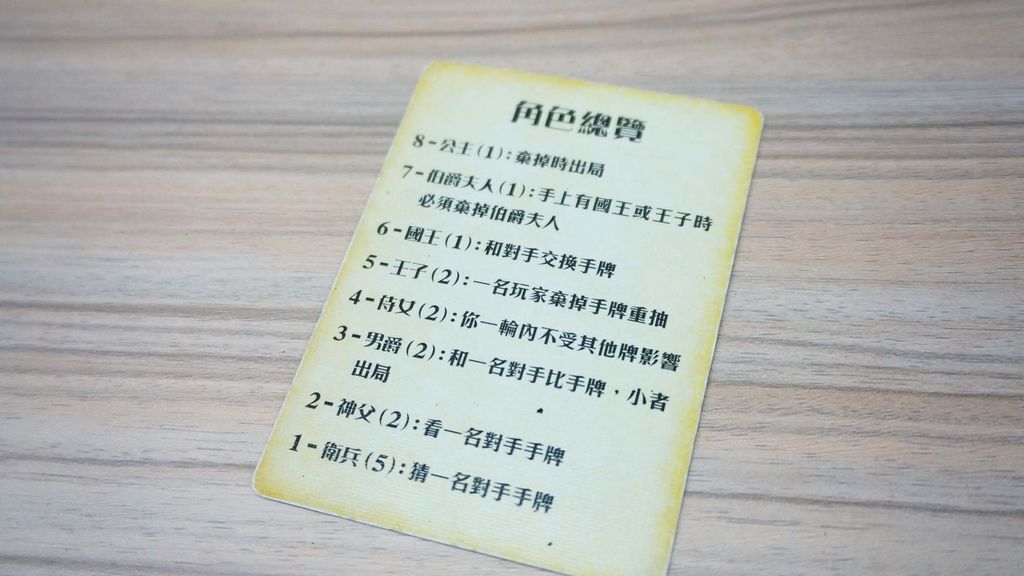 角色總覽
8-公主(1):棄掉時出局
7-伯爵夫人(1):手上有國王或王子時
必須棄掉伯爵夫人
6-國王(1):和對手交換手牌
5-王子(2):一名玩家棄掉手牌重抽
4-侍女(2):你一輪內不受其他牌影響
3-男爵(2):和一名對手比手牌,小者
出局
2-神父(2):看一名對手手牌
1-衛兵(5):猜一名對手手牌